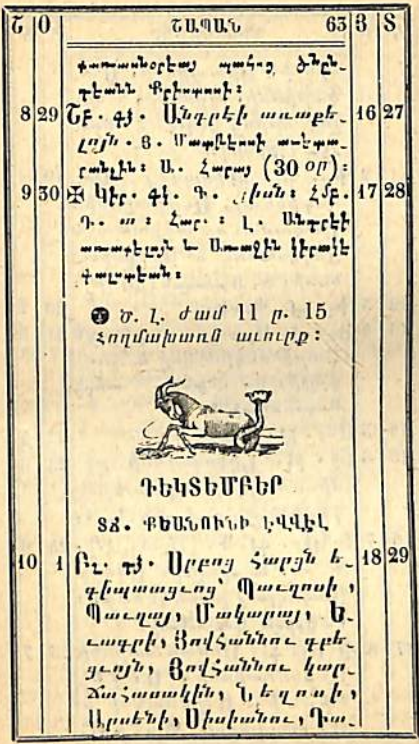 Շ Օ ՇԱՊԱՆ 63 Յ Տ
քառասնօրեայ պահոց ծնըն_
դեանն Քրիստոսի:
8 29 Շբ. գձ. Անդրէի առաքե_ 16 27
լոյն. Յ. Մատթէոսի աւետա_
րանչին: Ա. Հարայ (30 օր):
9 30 ✠ Կիր. դձ. Գ. յիսն: Հմբ. 17 28
Դ. տ: Հար.: Լ. Անդրէի
առաքելոյն և Առաջին կիրակէ
գալստեան:
Ծ. Լ. ժամ 11 ր. 15
Հողմախառն աւուրք:
ԴԵԿՏԵՄԲԵՐ
ՏՃ. ՔԵՍՆՈՒՆԻ ԷՎՎԷԼ
10 1 Բշ. դձ. Սրբոց Հարցն ե_ 18 29
գիպտացւոց՝ Պաւղոսի,
Պաւղայ, Մակարայ, Ե_
ւագրի, Յովհաննու գբե_
ցւոյն, Յովհաննու կար_
ճահասակին, Նեղոսի,
Արսենի, Սիսիանու, Դա_